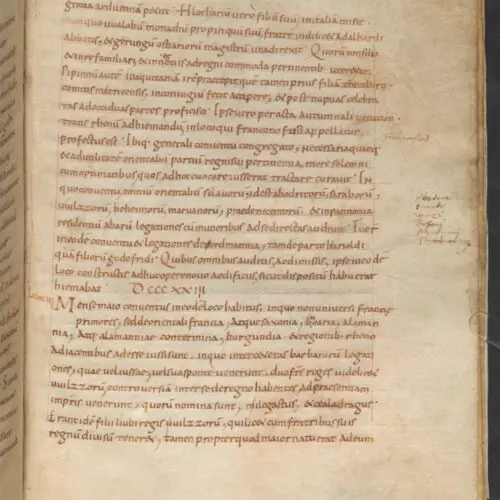 gratia arduennã petiit · Hlotharium verò filiũ suũ initaliã misit ·
cũquo uualahũ monachũ propinquũ suũ fratrẽ uidelicet adalhardi
abbatis, & gerungũ ostiariorũ magistrũ unà direxit · Quorũ consilio
& in re familiari, & in negotiis adregni commoda pertinentib; uteretur,
Pippinũ autẽ inaquitaniã ire praecepit quẽ tamen prius filiã theotberti
comitis matricensis, inconiugiũ fecit accipere, & post nuptias celebra
tas adoccidua partes proficisci · Ipse uero peracta autumnali uenatione
trans rhenũ adhiemandũ, inloco qui franconofurd appellatur,
profectus est · Ibiq; generali conuentu congregato, necessaria quaeq;
& adutilitatẽ orientaliũ partiũ regni sui pertinentia, more solemni
cum optimatibus quos adhoc euocare iusserat tractare curauit · In
quo conuentu, omniũ orientaliũ sclauorũ, id est abodritorũ, soraborũ
uuilzorũ, boheimorũ, maruanorũ, praedenecentorũ · & inpannonia
residentiũ abarũ legationes cũ muneribus adse directas audiuit · Fuer
in eodẽ conuentu & legationes de nordmannia, tam de parte harioldi
quã filiorũ godofridi · Quibus omnibus auditis, ac dimissis, ipse in eodẽ
loco constructis adhoc opere nouo aedificiis, sicut dispositũ habuerat
hiemabat · DCCCXXIII
Mense maio conuentus ineodẽ loco habitus, inquo nonuniuersi franciae
primores, sed de orientali francia, atque saxonia, baioaria, alaman
nia, atq; alamanniae contermina, burgundia, & regionib; rheno
adiacentibus adesse iussi sunt, inquo inter ceteras barbarorũ legati
ones, quae uel iussae, uel sua sponte uenerunt, duo fr̃es reges uidelicet
uuilzorũ controuersia inter se de regno habentes ad praesentiam
imp̃ris uenerunt, quorũ nomina sunt, milegastus, & cealadragus ·
Erant idẽ filii liubi regis uuilzorũ, qui licet cum fratribus suis
regnũ diuisũ teneret, tamen propter quod maior natu erat adeum